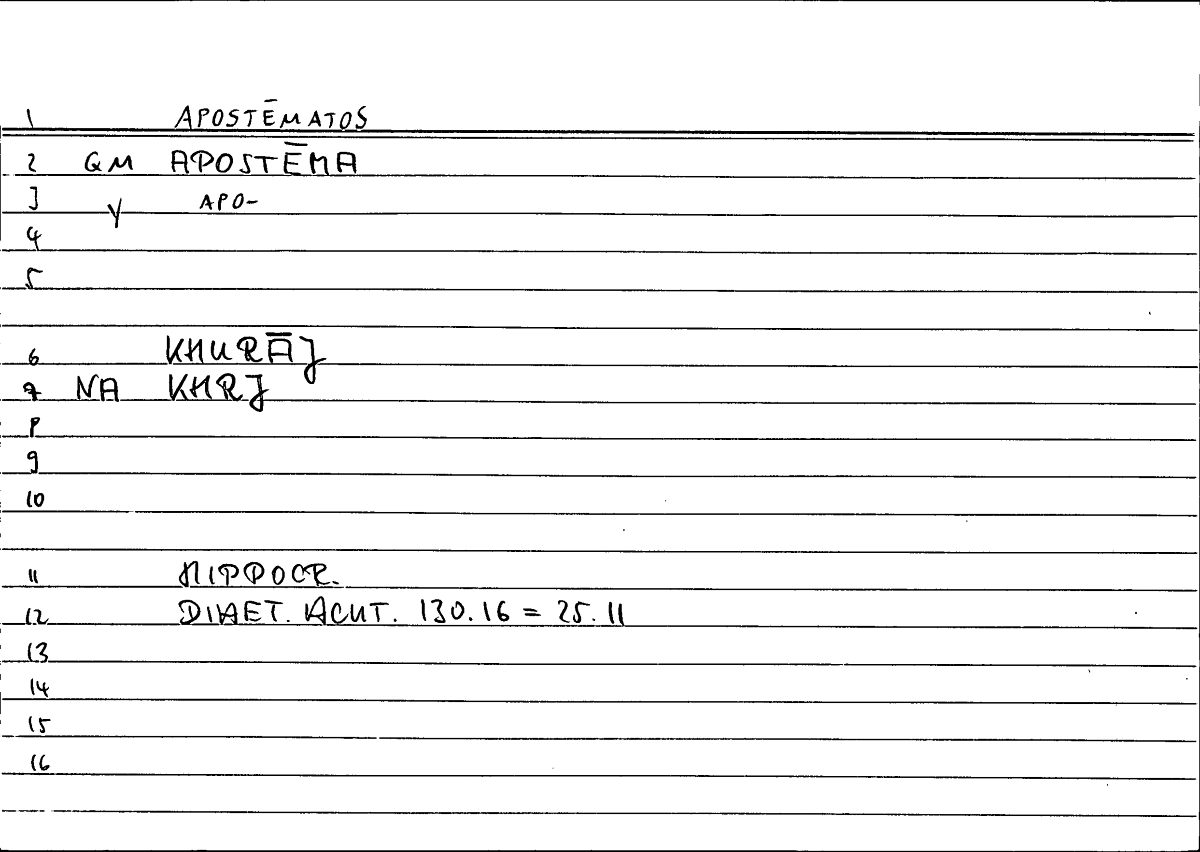 1 APOSTĒMATOS
2 QM APOSTĒMA
3 Y APO-
4
5
6 KHURĀJ
7 NA KHRJ
8
9
10
11 HIPPOCR.
12 DIAET. ACUT. 130.16 = 25.11
13
14
15
16